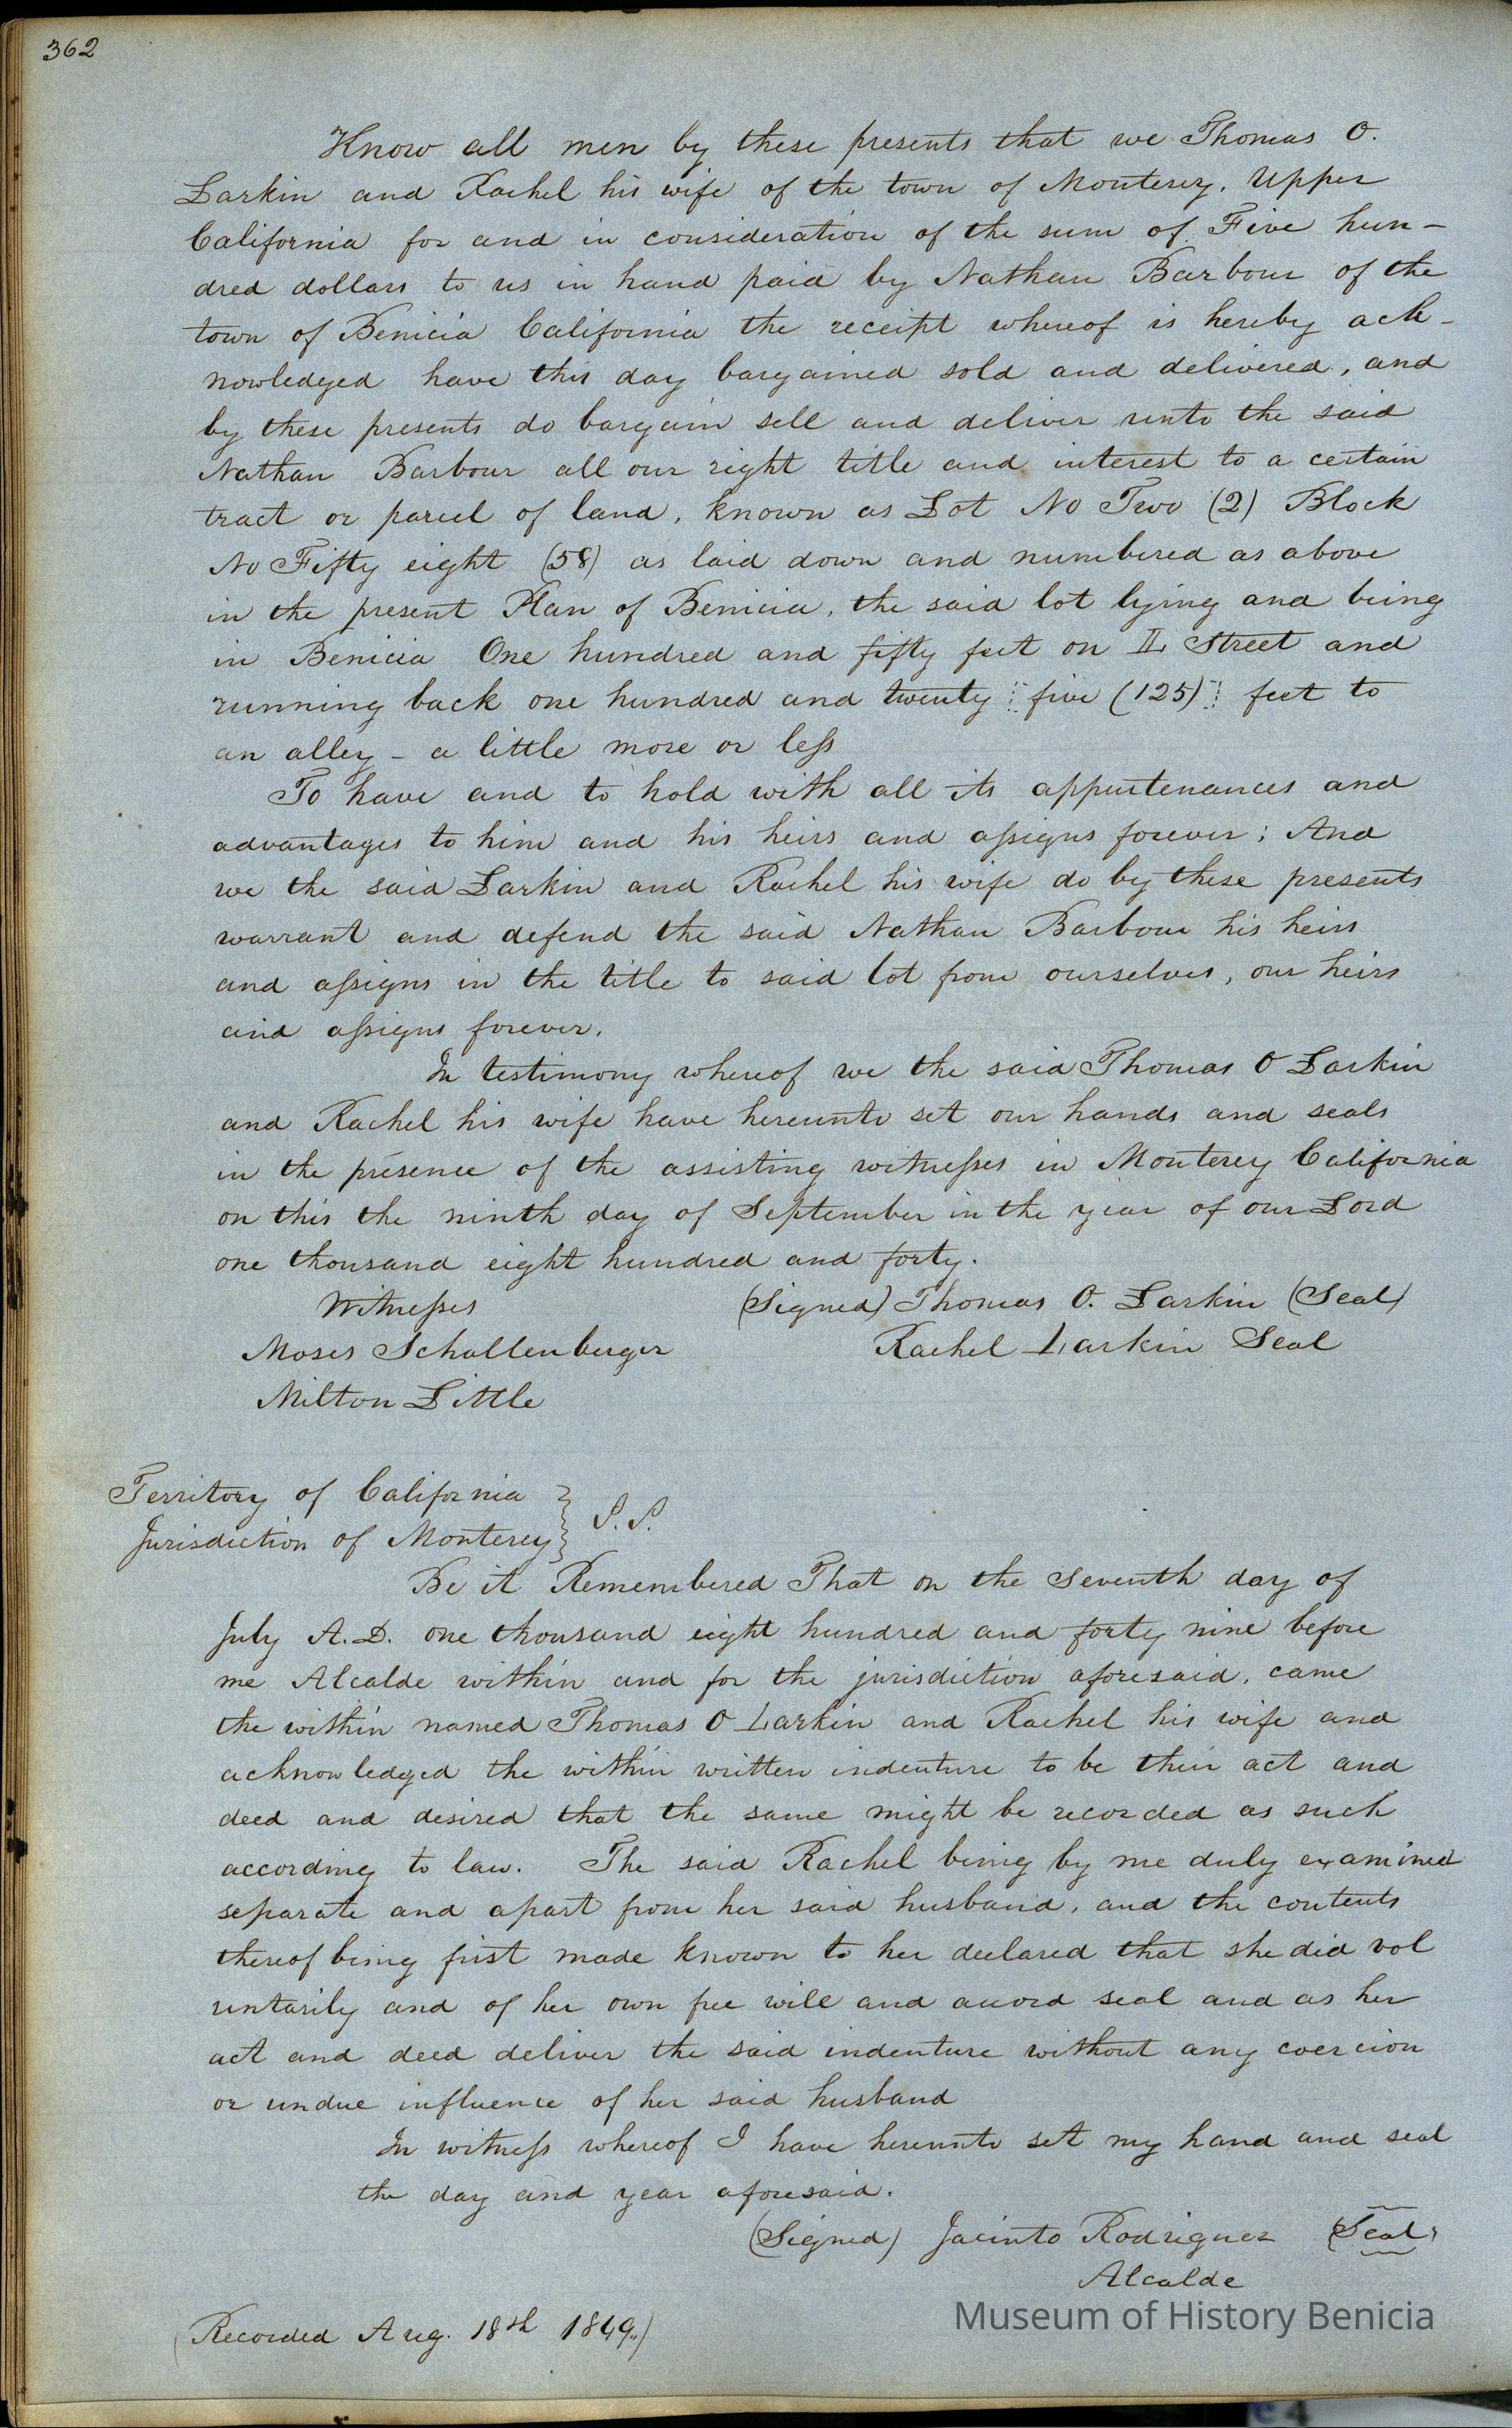 362
Know all men by these presents that we Thomas O.
Larkin and Rachel his wife of the town of Monterey, Upper
California for and in consideration of the sum of Five hun-
dred dollars to us in hand paid by Nathan Barbour of the
town of Benicia California the receipt whereof is hereby ack-
nowledged have this day bargained sold and delivered, and
by these presents do bargain sell and deliver unto the said
Nathan Barbour all our right title and interest to a certain
tract or parcel of land, known as Lot No Two (2) Block
No Fifty eight (58) as laid down and numbered as above
in the present Plan of Benicia, the said lot lying and being
in Benicia One hundred and fifty feet on Street and
running back one hundred and twenty five (125) feet to
an alley - a little more or less
To have and to hold with all its appurtenances and
advantages to him and his heirs and assigns forever; And
we the said Larkin and Rachel his wife do by these presents
warrant and defend the said Nathan Barbour his heirs
and assigns in the title to said lot from ourselves, our heirs
and assigns forever.
In testimony whereof we the said Thomas O Larkin
and Rachel his wife have hereunto set our hands and seals
in the presence of the assisting witnesses in Monterey California
on this the ninth day of September in the year of our Lord
one thousand eight hundred and forty.
Witnesses (Signed) Thomas O. Larkin (Seal)
Moses Schallenberger Rachel Larkin Seal
Milton Little
Territory of California
Jurisdiction of Monterey } S.S.
Be it Remembered That on the Seventh day of
July A.D. one thousand eight hundred and forty nine before
me Alcalde within and for the jurisdiction aforesaid, came
the within named Thomas O Larkin and Rachel his wife and
acknowledged the within written indenture to be their act and
deed and desired that the same might be recorded as such
according to law. The said Rachel being by me duly examined
separate and apart from her said husband, and the contents
thereof being first made known to her declared that she did vol
untarily and of her own free will and accord seal and as her
act and deed deliver the said indenture without any coercion
or undue influence of her said husband
In witness whereof I have hereunto set my hand and seal
the day and year aforesaid.
(Signed) Jacinto Rodriguez (Seal)
Alcalde
(Recorded Aug. 18th 1849.)
Museum of History Benicia